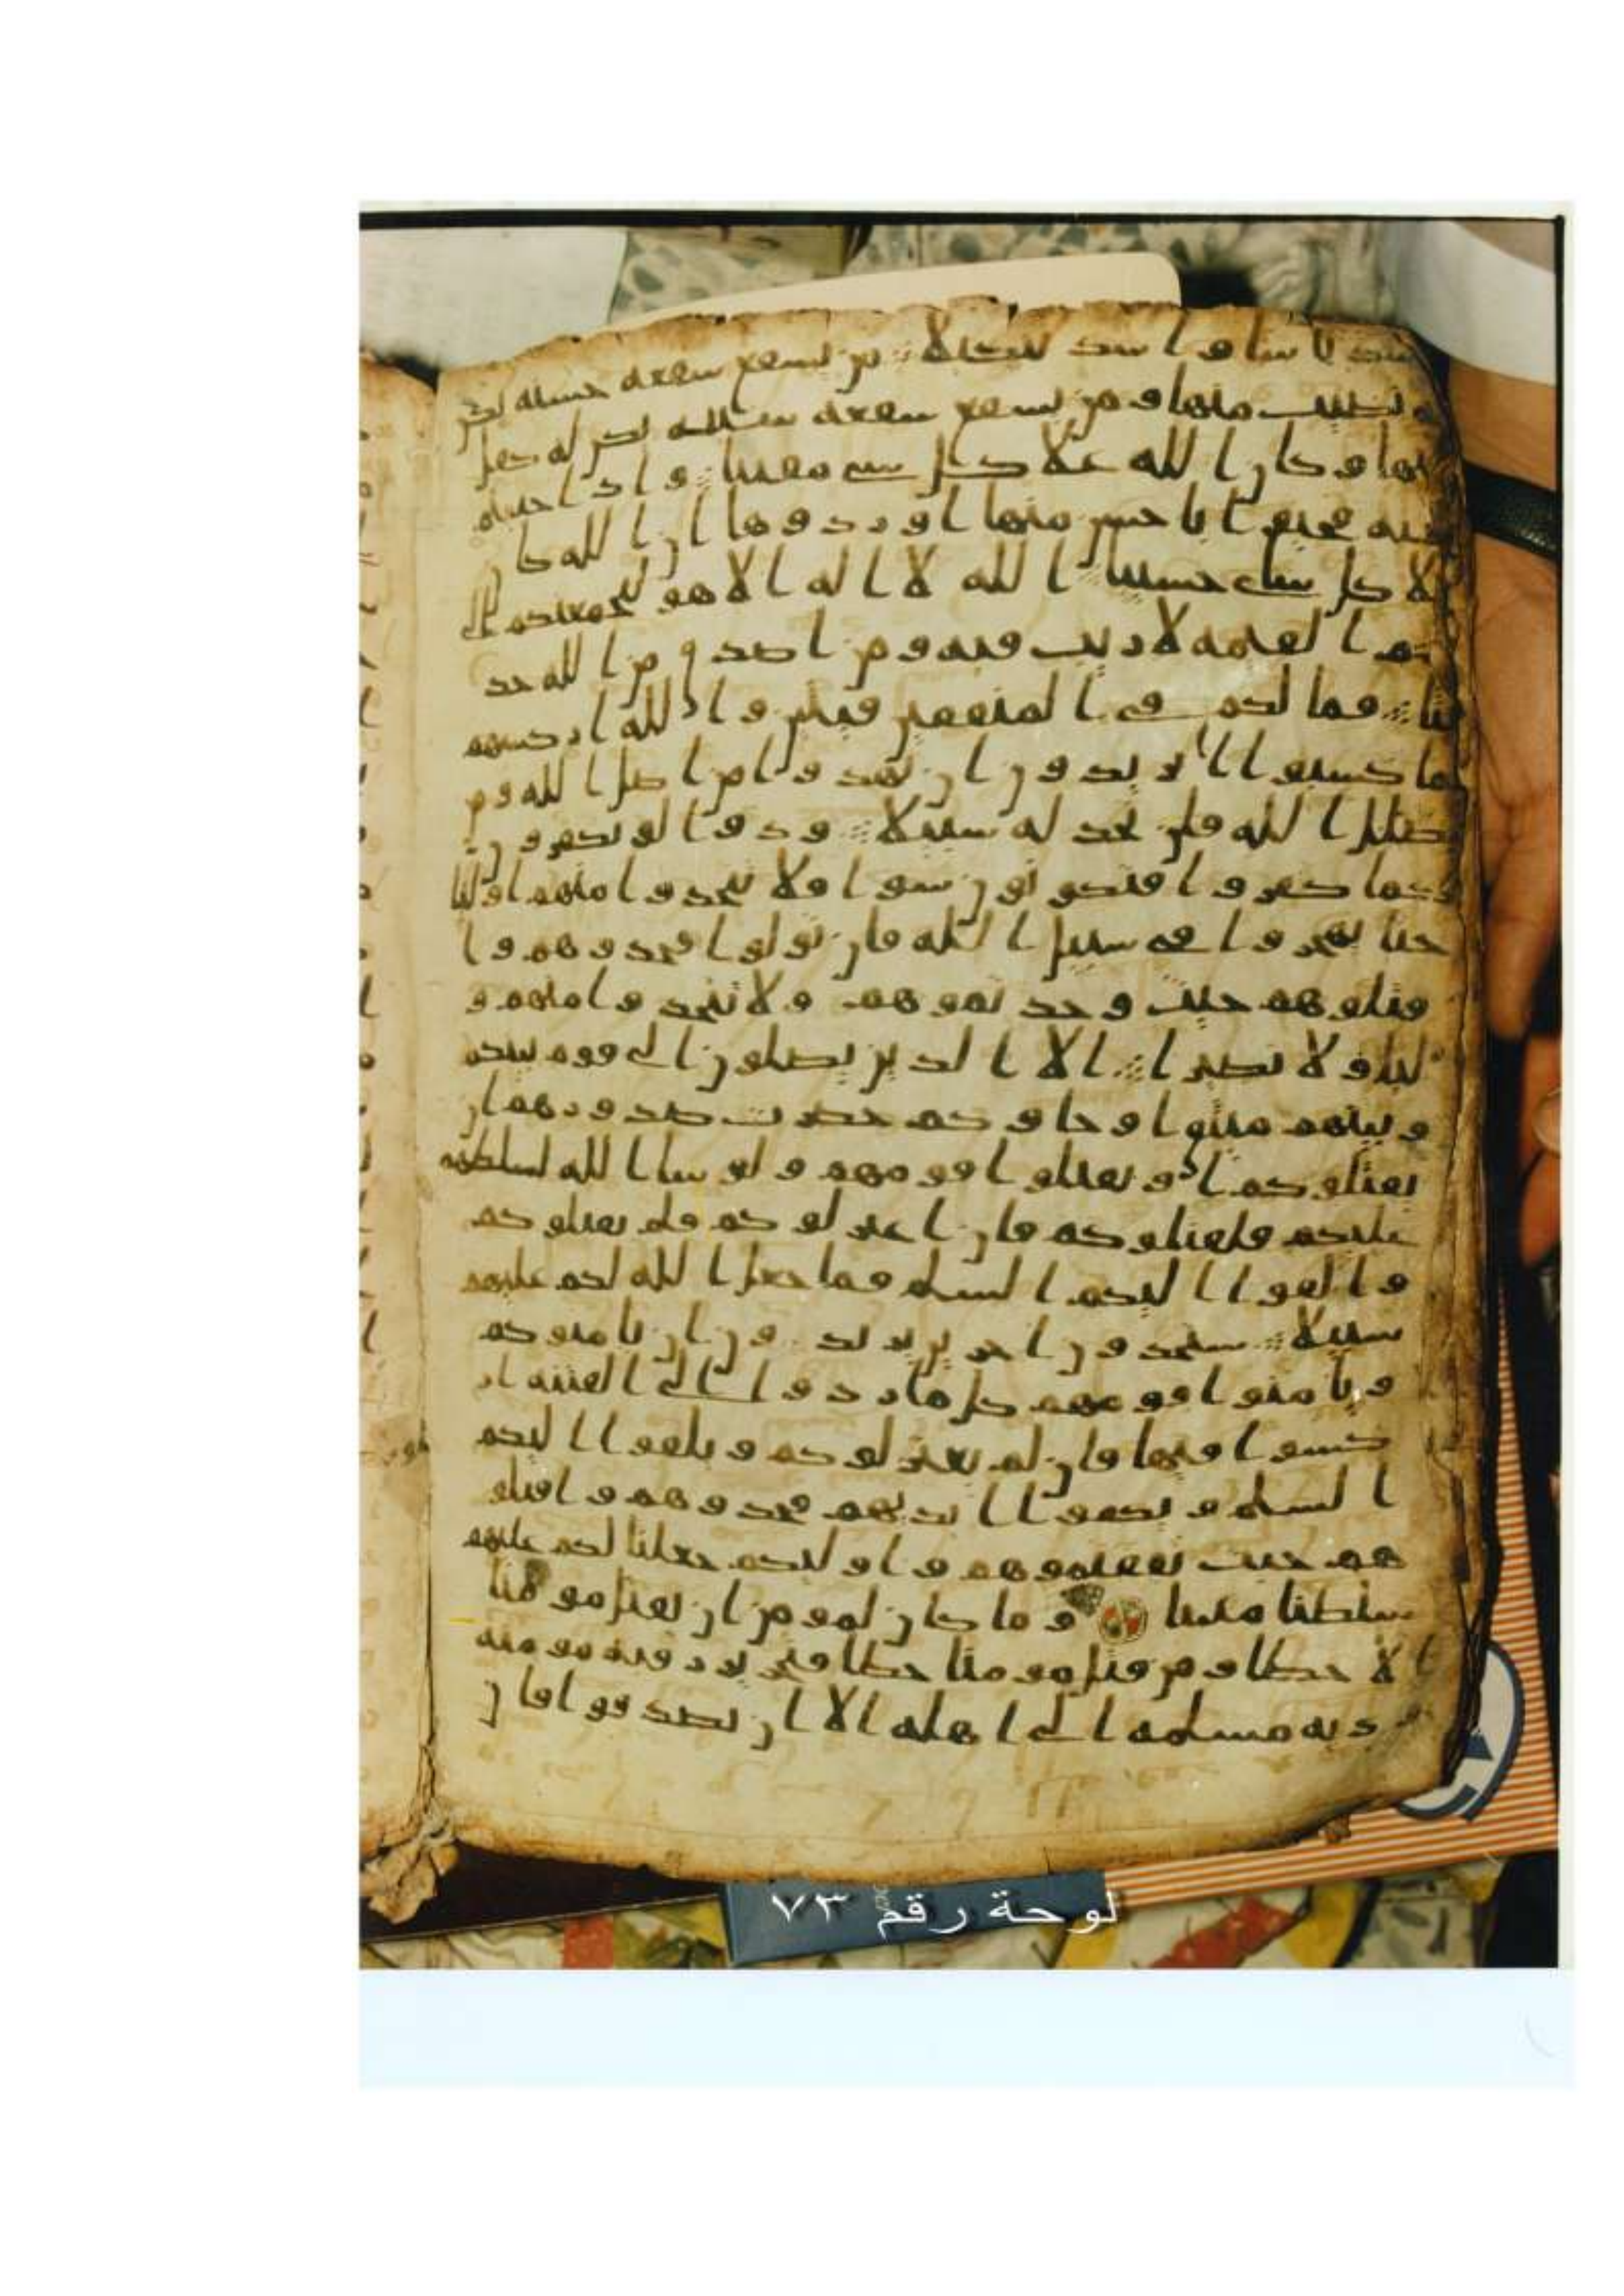 شد باسا و اشد تنكيلا من يشفع شفعة حسنة يكن
له نصيب منها و من يشفع شفعة سيئة يكن له كفل
منها و كان الله علا كل شى مقيتا و اذا حييتم
بتحية فحيوا باحسن منها او ردوها ان الله كا ن
علا كل شاى حسيبا الله لا اله الا هو ليجمعنكم الى
يوم القيمة لا ريب فيه و من اصدق من الله حد
يثا فما لكم فى المنفقين فئتين و الله اركسهم
بما كسبوا اتر يدون ان تهدوا من اضل الله و من
يضلل الله فلن تجد له سبيلا ودوا لو تكفرون
كما كفروا فتكونون سوا فلا تتخذوا منهم اوليا
حتا يهجروا فى سبيل الله فان تولوا فخذوهم و ا
قتلوهم حيث وجد تموهم و لا تتخذوا منهم و
ليا و لا نصيرا الا الذين يصلون الى قوم بينكم
و بينهم ميثق او جاوكم حصرت صدورهم ان
يقتلوكم او يقتلوا قومهم و لو شا الله لسلطهم
عليكم فلقتلوكم فان اعتزلوكم فلم يقتلوكم
و القوا اليكم السلم فما جعل الله لكم عليهم
سبيلا ستجدون اخرين يريد و ن ان يامنوكم
و يامنوا قومهم كل ما ردوا الى الفتنة ار
كسوا فيها فان لم يعتزلوكم و يلقوا اليكم
السلم و يكفوا ايديهم فخذوهم و اقتلو
هم حيث ثقفتموهم و اوليكم جعلنا لكم عليهم
سلطنا مبينا و ما كان لمومن ان يقتل مومنا
ا لا خطا و من قتل مومنا خطا فتحرير رقبة مومنة
و دية مسلمة الى اهله الا ان يصدقوا فان
لوحة رقم ٧٣